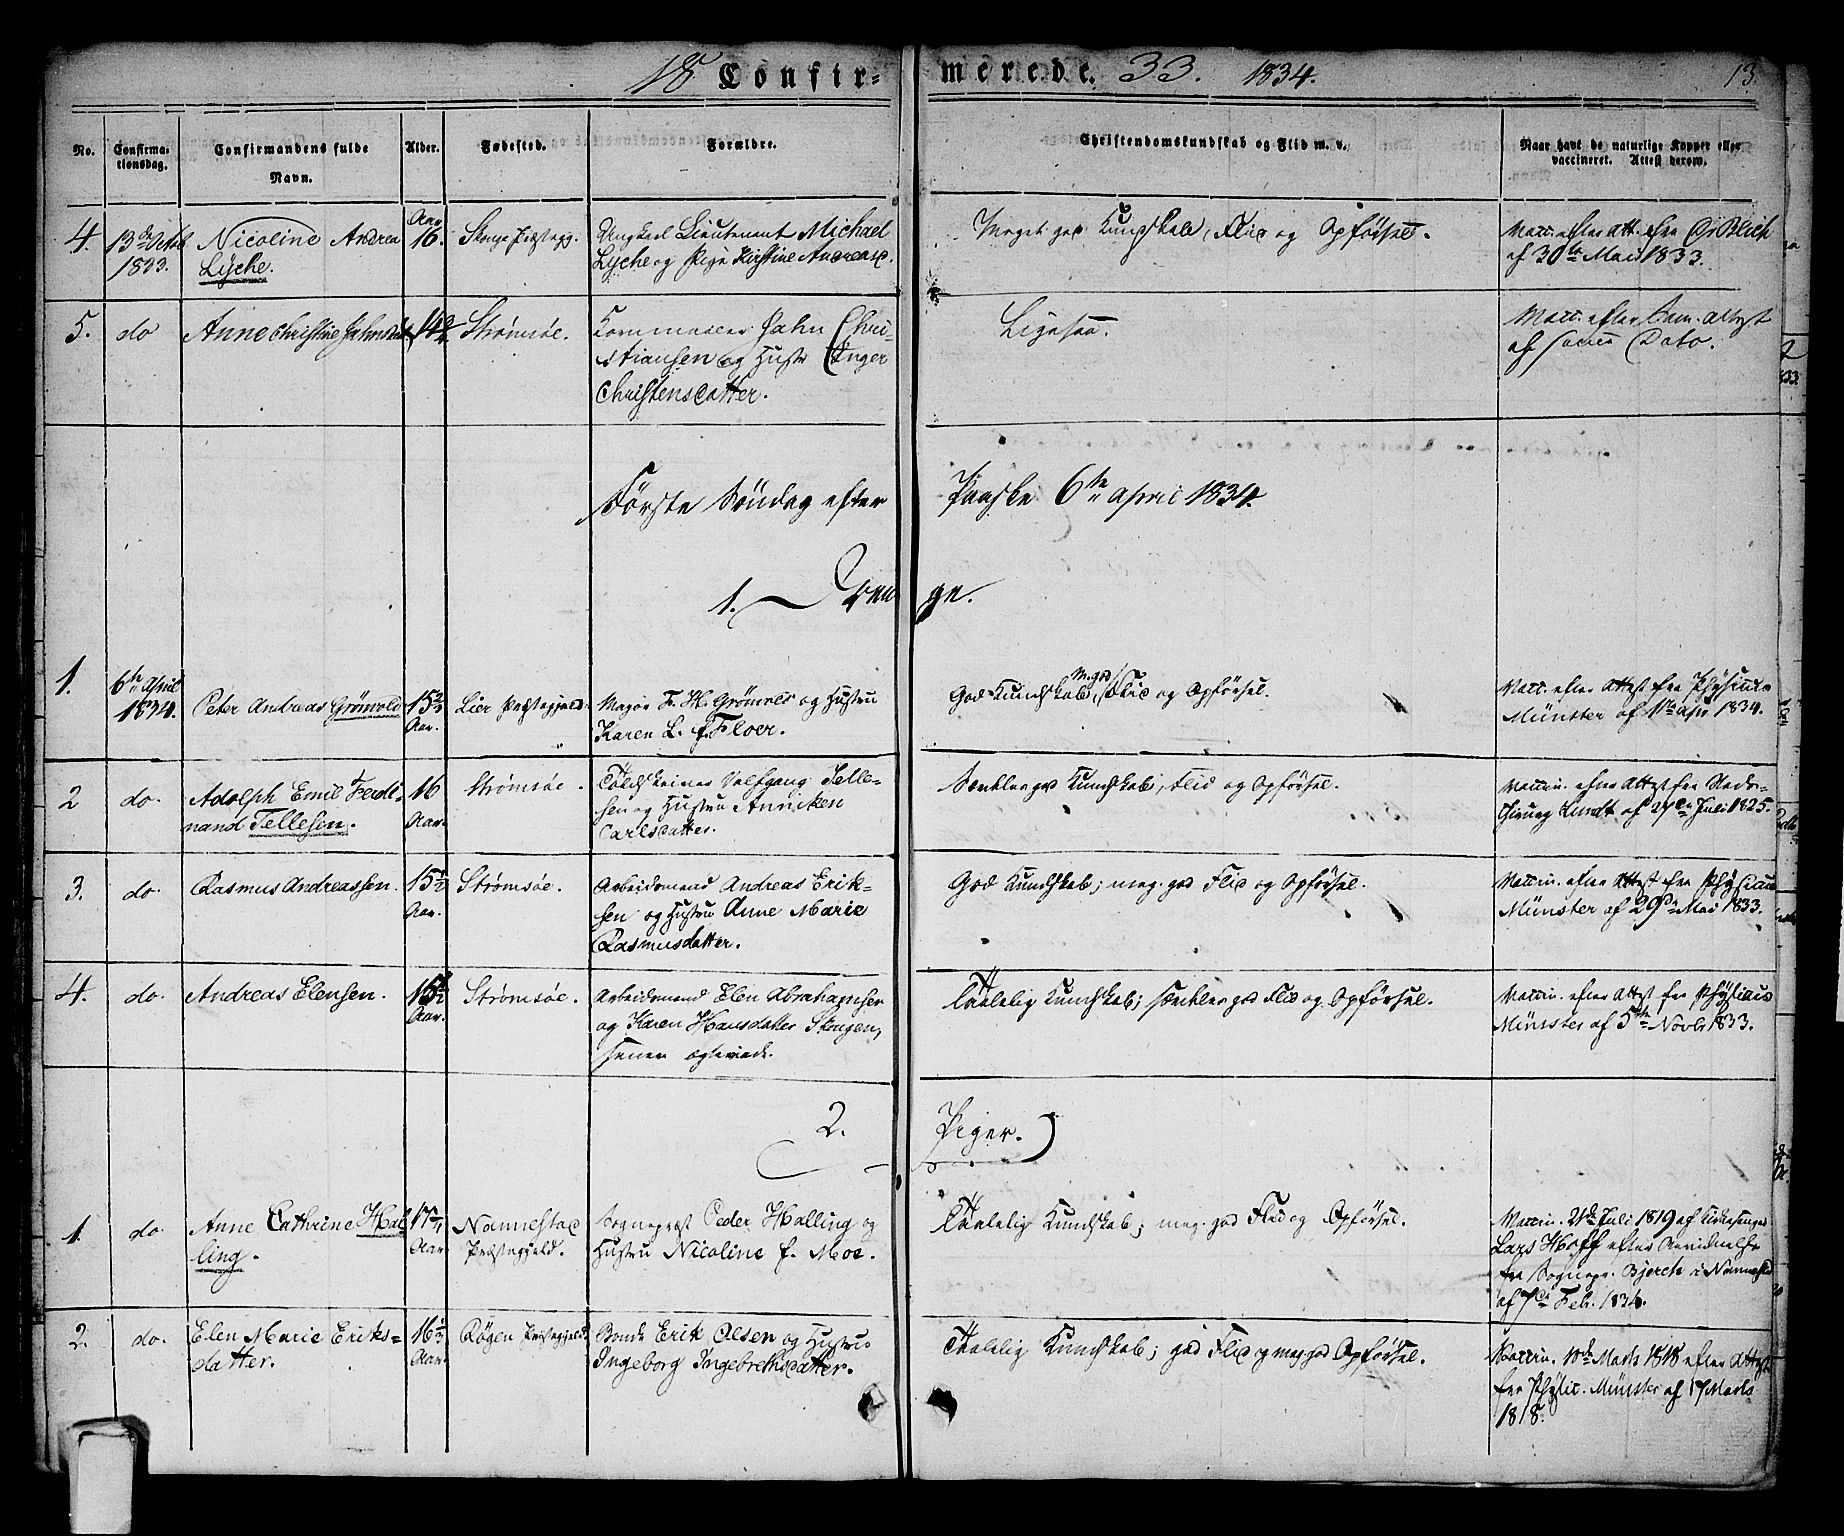 18 Confir- merede. 33. 1834. 13.
No. Confirma-tionsdag. Confirmandens fulde Navn. Alder. Fødested. Forældre. Christendomskundskab og Flid m. v. Naar havt de naturlige Kopper eller vaccineret. Attest derom.
4. 13de Octob 1833. Nicoline Andrea Lyche. 16. Aar Præstegj. Ungkarl Lieutenant Michael Lyche og Pige Kirstine Andreasd. Meget god Kundskab, Flid og Opførsel. Vacc. efter Att. fra Blich af 30te Mai 1833.
5. do Anne Christine Strømsøe. Jahn Christiansen og Hustr Inger Christensdatter. Ligesaa. Vacc. efter Attest af samme Dato.
Første Søndag efter Paaske 6te April 1834.
1. Drenge.
1. 6te April 1834. Peter Andreas Grönvold 15 Aar. Lier Præstegjeld. Major F. H. Grönvold og Hustru Karen L. f. Floer. God Kundskab, M. god Flid og Opførsel. Vacc. efter Attest fra Physicus Münster af 1te Apr 1834.
2 do. Adolph Emil Ferdinand Tellesen. 16 Aar. Strømsøe. Tellesen og Hustru Anneken Carlsdatter. Særdeles god Kundskab, Flid og Opførsel. Vaccin. efter Attest fra Lundt af 27de Juli 1825.
3. do Rasmus Andreassen. 15½ Aar. Strømsøe. Arbeidsmand Andreas Eriksen og Hustru Anne Marie Rasmusdatter. God Kundskab; meg. god Flid og Opførsel. Vaccin. efter Attest fra Physicus Münster af 29de Mai 1833.
4. do. Andreas Elensen. Aar. Strømsøe. Arbeidsmand Elen Abrahamsen og Karen Hansdatter Skogen, Taalelig Kundskab; særdeles god Flid og Opførsel. Vaccin. efter Attest fra Physicus Münster af 5te Novbr 1833.
2. Piger.
1. do. Anne Cathrine Halling. 17 Aar. Nannestad Præstegjeld. Sognepræst Peder Halling og Hustru Nicoline f. Moe. Taalelig Kundskab; meg. god Flid og Opførsel. Vaccin. 21de Juli 1819 af Kirkesanger Lars Hoff efter fra Sognepr. Bjerch i Nannestad af 7de Feb. 1834.
2. do. Elen Marie Eriksdatter. 16 Aar. Røgen Præstegjeld Bonde Erik Olsen og Hustru Ingeborg Ingebrethsdatter. Taalelig Kundskab; god Flid og meg god Opførsel. Vaccin. 10de Marts 1818 efter Attest fra Physic. Münster af 17 Marts 1818.